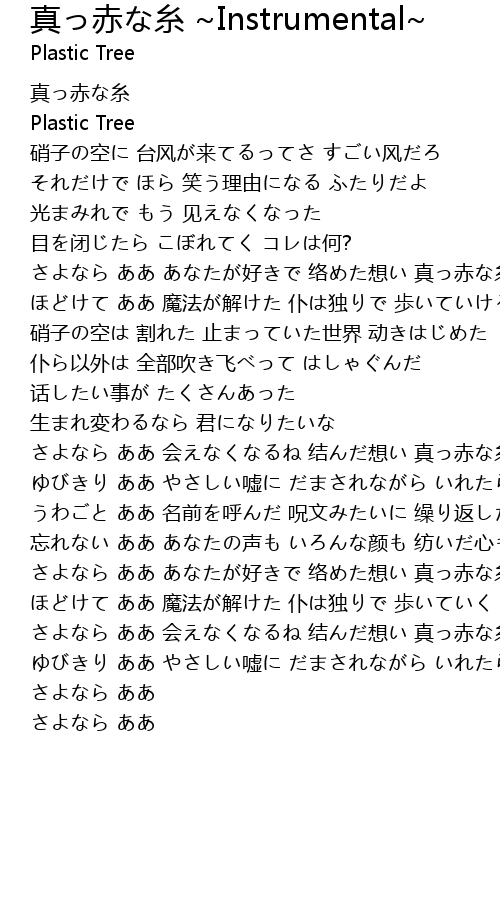 真っ赤な糸 ~Instrumental~
Plastic Tree
真っ赤な糸
Plastic Tree
硝子の空に 台风が来てるってさ すごい风だろ
それだけで ほら 笑う理由になる ふたりだよ
光まみれで もう 见えなくなった
目を闭じたら こぼれてく コレは何?
さよなら ああ あなたが好きで 络めた想い 真っ赤な糸
ほどけて ああ 魔法が解けた 仆は独りで 歩いていける
硝子の空は 割れた 止まっていた世界 动きはじめた
仆ら以外は 全部吹き飞べって はしゃぐんだ
话したい事が たくさんあった
生まれ変わるなら 君になりたいな
さよなら ああ 会えなくなるね 结んだ想い 真っ赤な糸
ゆびきり ああ やさしい嘘に だまされながら いれたら
うわごと ああ 名前を呼んだ 呪文みたいに 缲り返した
忘れない ああ あなたの声も いろんな颜も 纺いだ心も
さよなら ああ あなたが好きで 络めた想い 真っ赤な糸
ほどけて ああ 魔法が解けた 仆は独りで 歩いていく
さよなら ああ 会えなくなるね 结んだ想い 真っ赤な糸
ゆびきり ああ やさしい嘘に だまされながら いれたら
さよなら ああ
さよなら ああ